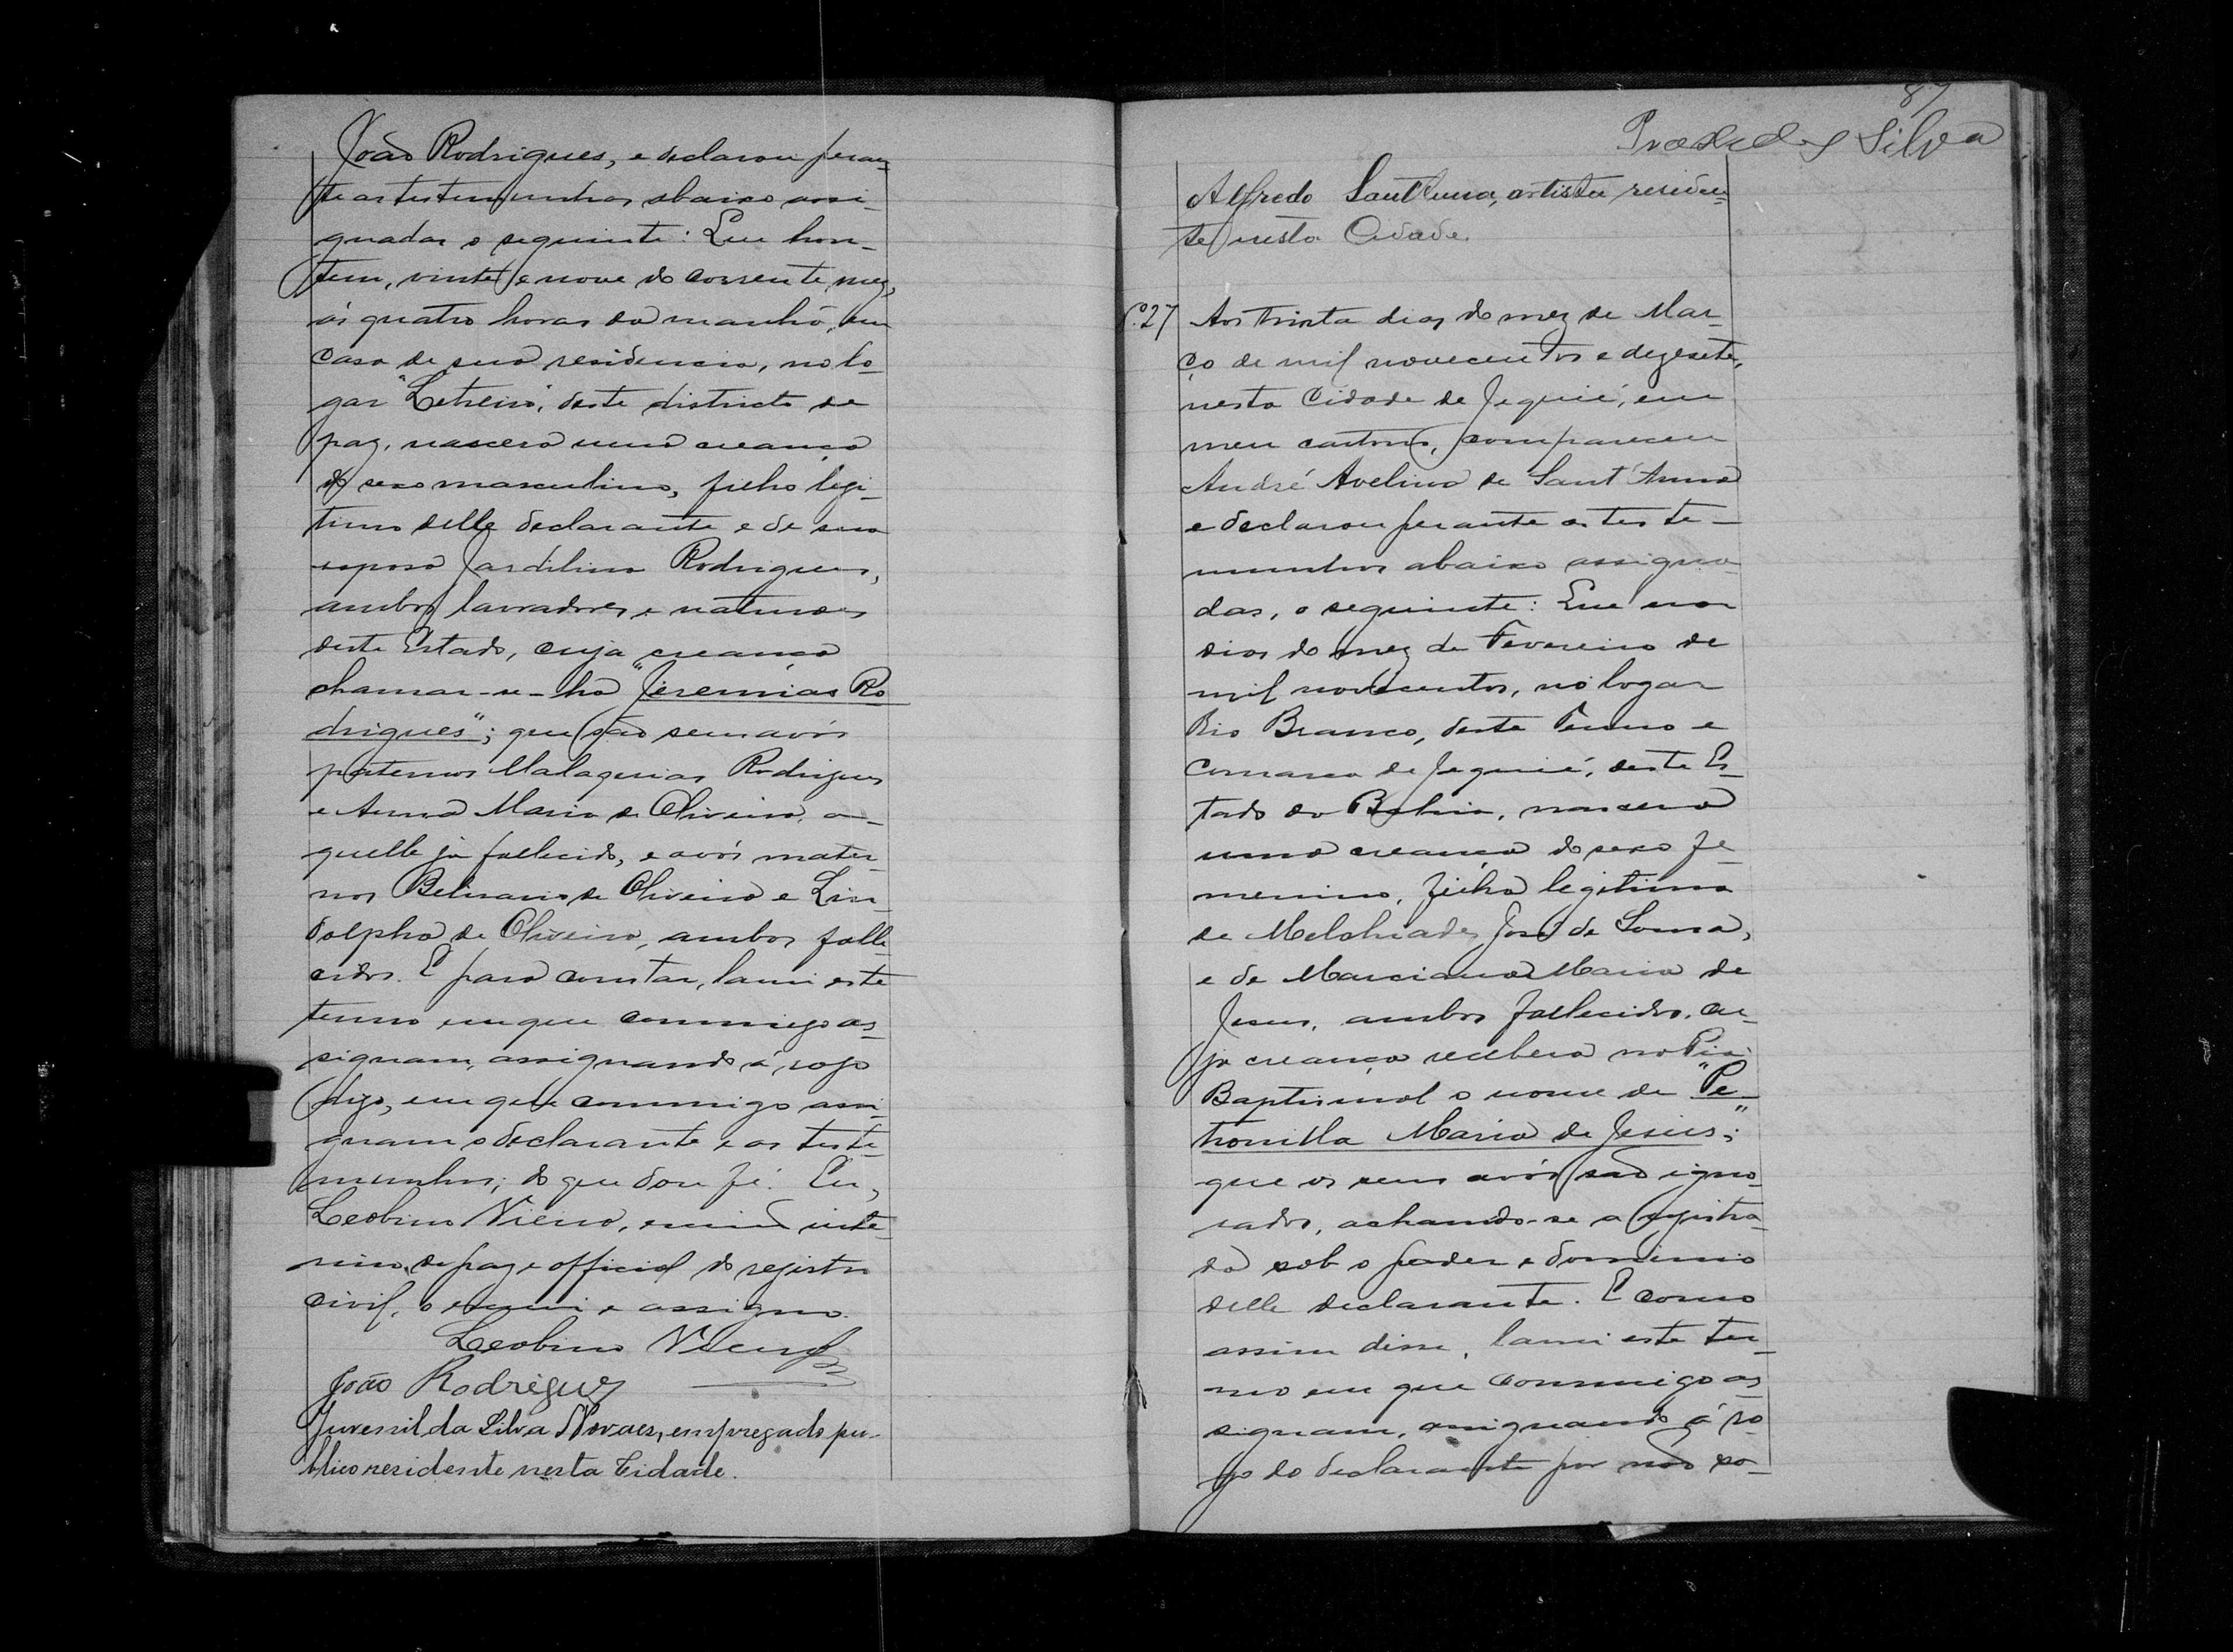 João Rodrigues, e declarou peran-
te as testemunhas abaixo assi-
gnadas o seguinte: Que hon-
tem, vinte e nove do corrente mez,
ás quatro horas da manhã, em
casa de sua residencia, no lo-
gar "Letreiro", deste districto de
paz, nascera uma creança
do sexo masculino, filho legi-
timo delle declarante e de sua
esposa Jardilina Rodrigues,
ambos lavradores e naturaes
deste Estado, cuja creança
chamar-se-ha "Jeremias Ro-
drigues"; que são seus avós
paternos Malaquias Rodrigues
e Anna Maria de Oliveira, a-
quelle já fallecido, e avós mater-
nos Belisario de Oliveira e Lin-
dolpha de Oliveira, ambos falle-
cidos. E para constar, lavrei este
termo em que commigo as-
signam, assignando á rogo
digo, em que commigo assi-
gnam o declarante e as teste-
munhas; do que dou fé. Eu,
Leobino Vieira, escrivão inte-
rino de paz e official do registro
civil, o escrevi e assigno.
Leobino Vieira
João Rodrigues
Juvenil da Silva Novaes, empregado pu-
blico residente nesta Cidade.
87
Praxedes Silva
Alfredo Sant'Anna, artista residen-
te nesta Cidade.
N.º 27 Aos trinta dias do mez de Mar-
ço de mil novecentos e dezesete,
nesta Cidade de Jequié, em
meu cartorio, compareceu
André Avelino de Sant'Anna
e declarou perante as teste-
munhas abaixo assigna-
das, o seguinte: Que nos
dias do mez de Fevereiro de
mil novecentos, no logar
Rio Branco, deste Termo e
Comarca de Jequié, deste Es-
tado da Bahia, nascera
uma creança do sexo fe-
menino, filha legitima
de Melchiades José de Souza,
e de Marciana Maria de
Jesus, ambos fallecidos, cu-
ja creança recebera na Pia
Baptismal o nome de "Pe-
tronilla Maria de Jesus";
que os seus avós são igno-
rados, achando-se a registra-
da sob o poder e dominio
delle declarante. E como
assim disse, lavrei este ter-
mo em que commigo as-
signam, assignando á ro-
go do declarante por não sa-